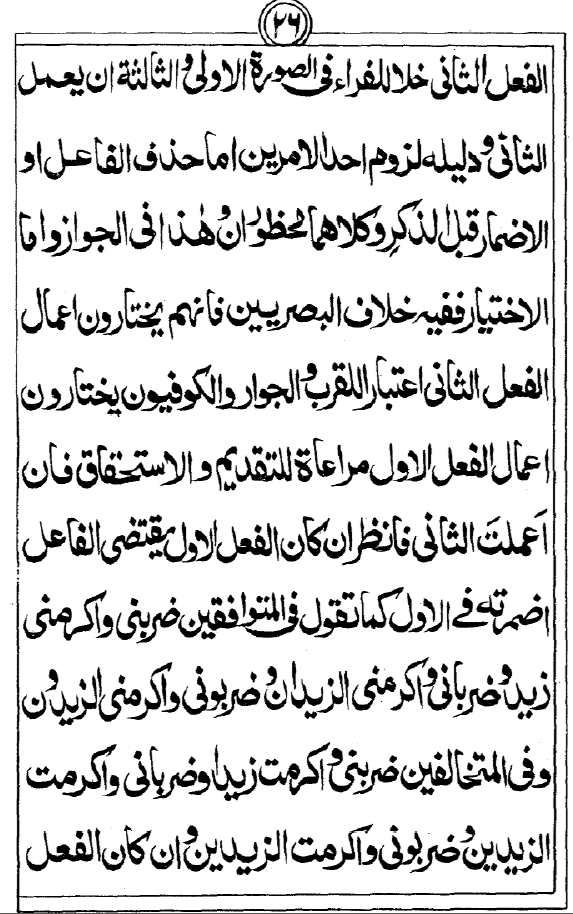 ٢٦
الفعل الثانى خلافا للفراء فى الصورة الاولى والثالثة ان يعمل
الثانى ودليله لزوم احد الامرين اما حذف الفاعل او
الاضمار قبل الذكر وكلاهما محظوران وهٰذا فى الجواز واما
الاختيار ففيه خلاف البصريين فانهم يختارون اعمال
الفعل الثانى اعتبارا للقرب والجوار والكوفيون يختارون
اعمال الفعل الاول مراعاة للتقديم والاستحقاق فان
اَعملتَ الثانى فانظر ان كان الفعل الاول يقتضى الفاعل
اضمرته فے الاول كما تقول فى المتوافقين ضربنى واكرمنى
زيد وضربانى واكرمنى الزيدان وضربونى واكرمنى الزيدون
وفى المتخالفين ضربنى واكرمت زيدا وضربانى واكرمت
الزيدين وضربونى واكرمت الزيدين وان كان الفعل